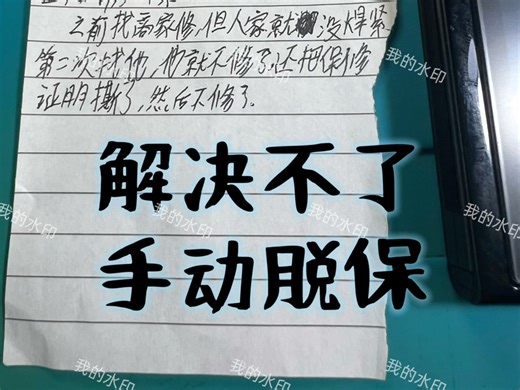 之前找商家修,但人家就没焊紧
第二次找他,他就不修了.还把保修
证明撕了,然后不修了.
解决不了
手动脱保
我的水印
我的水印
我的水印
我的水印
我的水印
我的水印
我的水印
我的水印